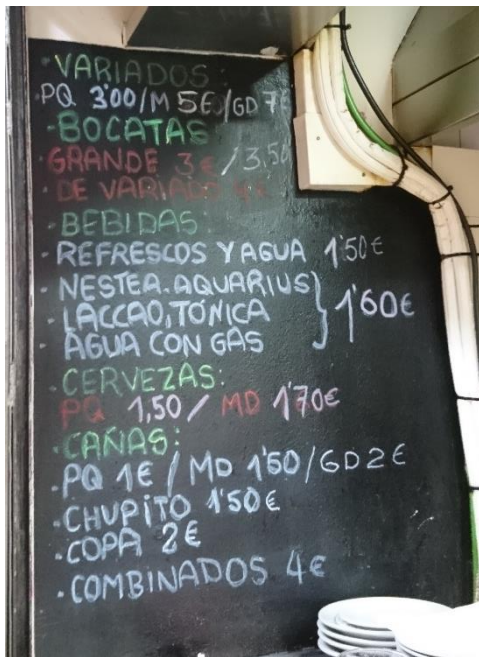 ·VARIADOS:
·PQ 3'00/M 5€/GD 7€
·BOCATAS
·GRANDE 3€/3,50
·DE VARIADO 4€
·BEBIDAS:
·REFRESCOS Y AGUA 1'50€
·NESTEA.AQUARIUS
·LACCAO,TÓNICA } 1'60€
·AGUA CON GAS
·CERVEZAS:
PQ 1,50 / MD 1'70€
·CAÑAS:
·PQ 1€ / MD 1'50/GD 2€
·CHUPITO 1'50€
·COPA 2€
·COMBINADOS 4€